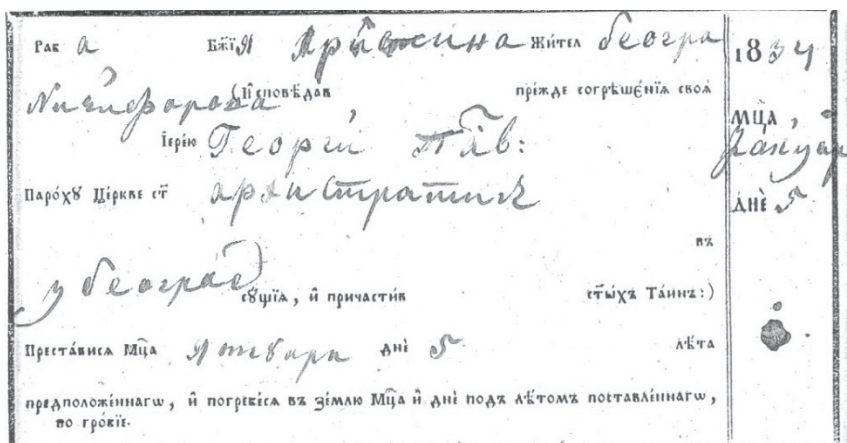 Раб а Бж҃їѧ Хрїстина жител београ
Никифорова (И҆споведав пре́жде согрѣше́нїѧ своѧ̀
І҆ере́ю Георгїй Пав:
Паро́хꙋ Це́ркве ст҃ архистратиг
въ
у београд сꙋ́щїѧ, и҆ причасти́в ст҃ы́хъ Та́инъ:)
Преста́висѧ Мц҃а Ꙗнꙋара днѐ 5 лѣ́та
предположе́ннагѡ, и҆ погребе́сѧ въ зе́млю Мц҃а и҆ днѐ под̾ лѣ́том поставле́ннагѡ,
во гро́бїе.
1834
Мц҃а,
Јануар
Днѐ 5